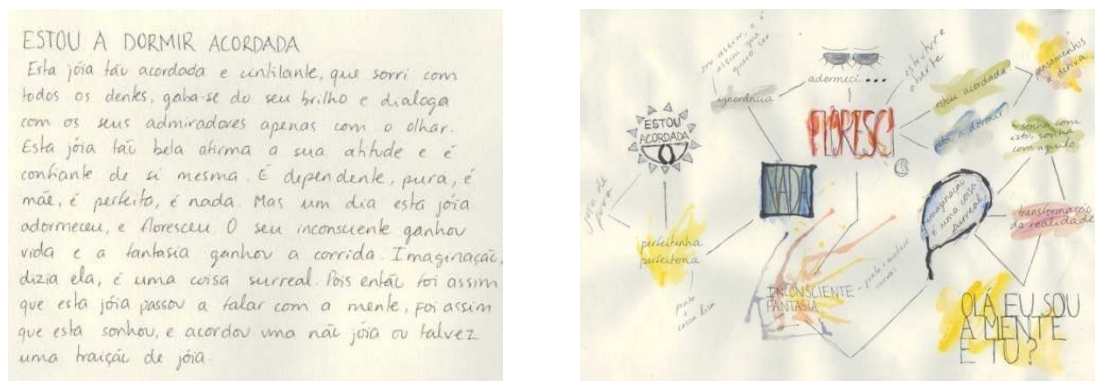 ESTOU A DORMIR ACORDADA
Esta jóia tão acordada e cintilante, que sorri com
todos os dentes, gaba-se do seu brilho e dialoga
com os seus admiradores apenas com o olhar.
Esta jóia tão bela afirma a sua atitude e é
confiante de si mesma. É dependente, pura, é
mãe, é perfeita, é nada. Mas um dia esta jóia
adormeceu, e floresceu. O seu inconsciente ganhou
vida e a fantasia ganhou a corrida. Imaginação,
dizia ela, é uma coisa surreal. Pois então foi assim
que esta jóia passou a falar com a mente, foi assim
que esta sonhou, e acordou uma não jóia ou talvez
uma traição de jóia.
ignorância
adormeci...
estrutura
aberta
estou acordada
pensamentos
deriva
ESTOU
ACORDADA
FLORESCI
a dormir
sonha com
isto, sonha
com aquilo
NADA
imaginação
é uma coisa
surreal
transformação
da realidade
perfeitinha
perfeitona
INCONSCIENTE
FANTASIA
OLÁ EU SOU
A MENTE
E TU?